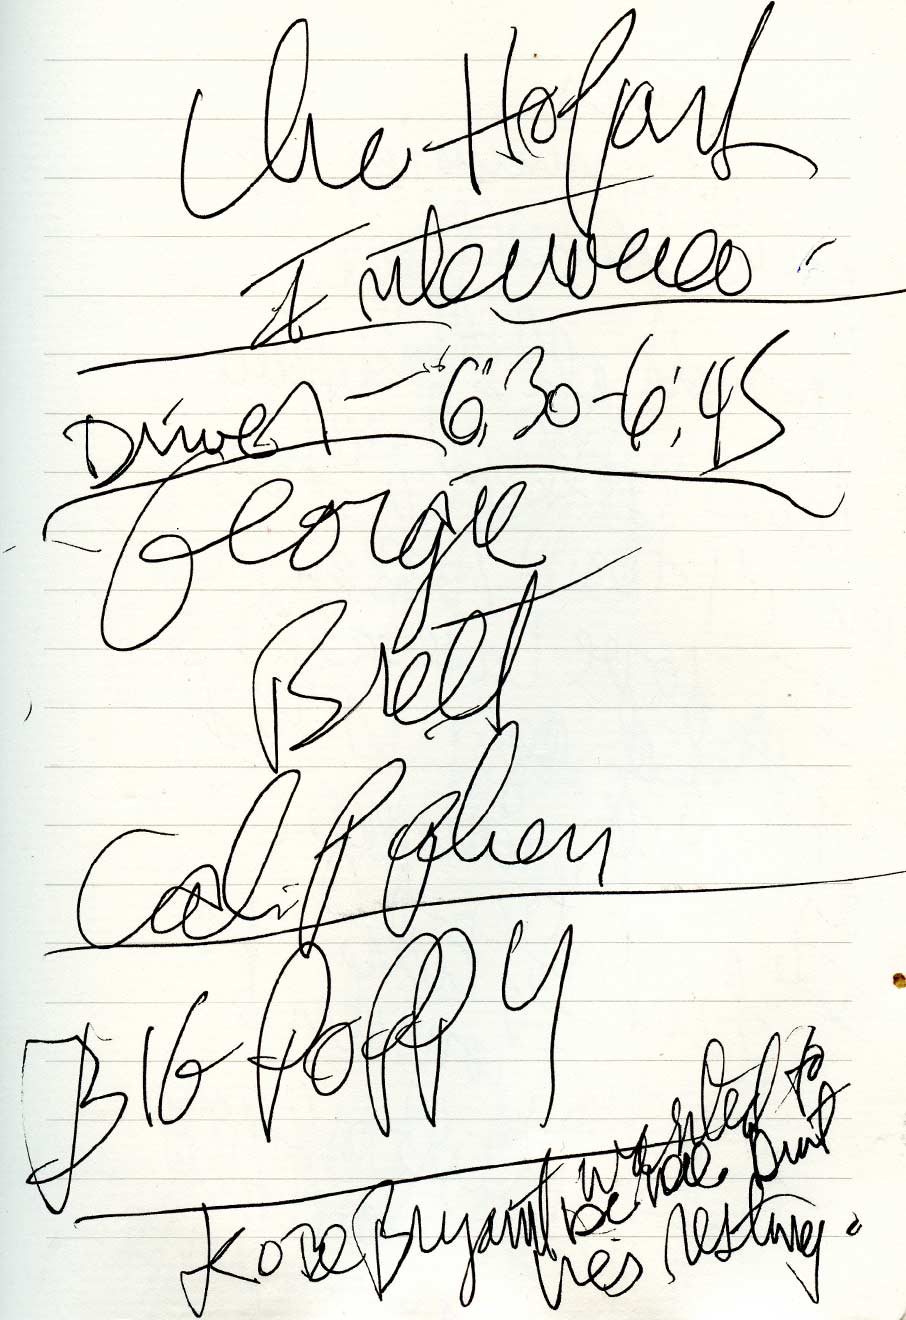 Che Hogart
Interviews
Dinner — 6:30-6:45
George
Brett
Cal Ripken
BIG POPPY
Kobe Bryant wanted to
be here but
he's resting.